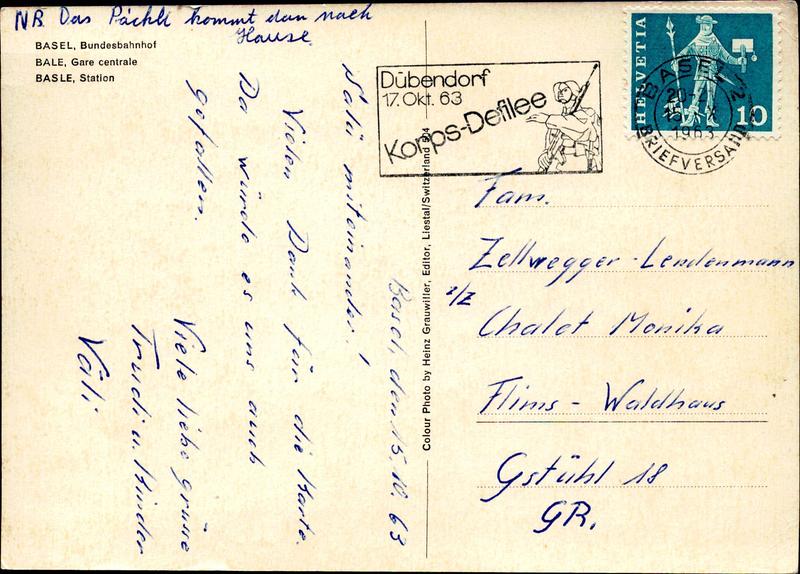 NB. Das Päckli kommt dan nach
Hause.
BASEL, Bundesbahnhof
BALE, Gare centrale
BASLE, Station
Basel, den 15. 10. 63
Salü miteinander!
Vielen Dank für die Karte.
Da würde es uns auch
gefallen.
Viele liebe grüsse
Trudi u. Kinder
Väli
Colour Photo by Heinz Grauwiller, Editor, Liestal/Switzerland 504
Dübendorf
17. Okt. 63
Korps-Defilee
HELVETIA
10
BASEL 2
20-
1963
BRIEFVERSAND
Fam.
Zellwegger-Lendenmann
z/Z
Chalet Monika
Flims - Waldhaus
Gstühl 18
GR.